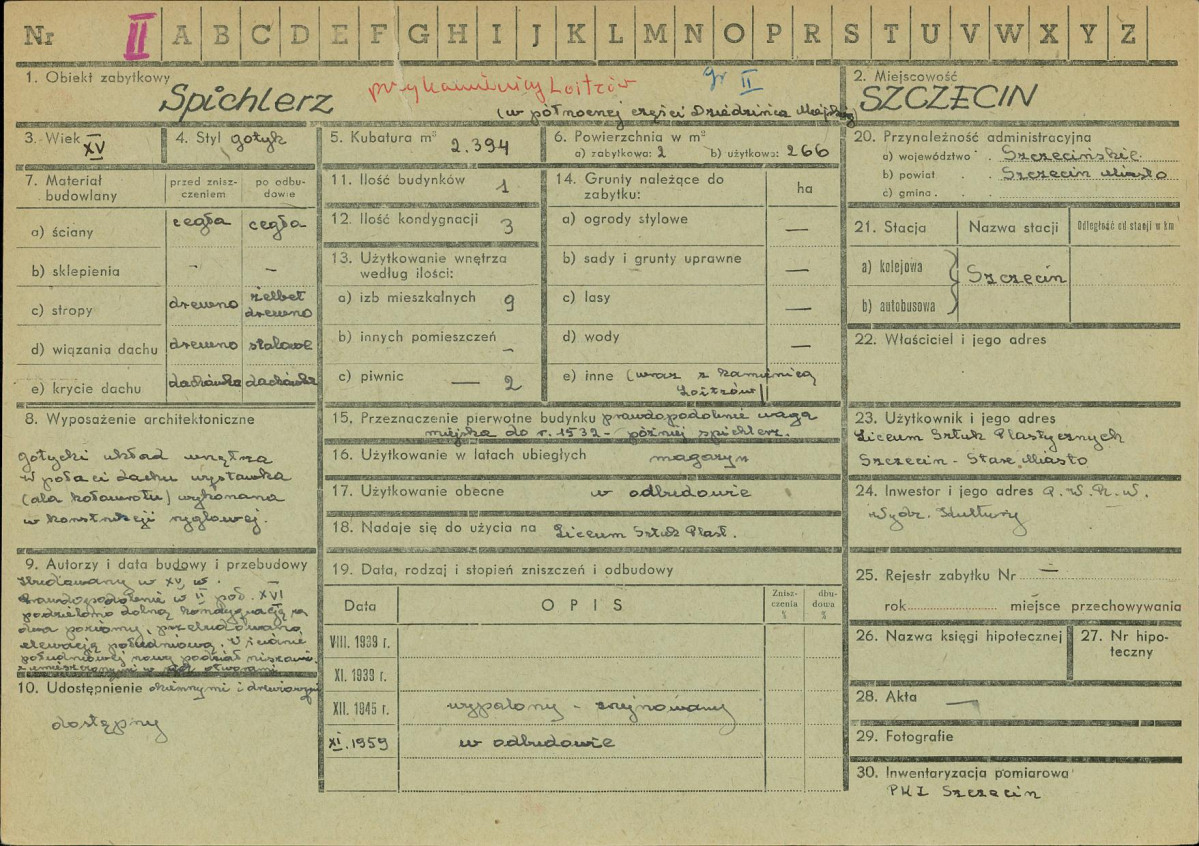 Nr II A B C D E F G H I J K L M N O P R S T U V W X Y Z
1. Obiekt zabytkowy
Spichlerz przy kamienicy Loitzów gr II
(w północnej części Dziedzińca Miejskiego)
2. Miejscowość
SZCZECIN
3. Wiek XV
4. Styl gotyk
5. Kubatura m³ 2.394
6. Powierzchnia w m²
a) zabytkowa: 2 b) użytkowa: 266
7. Materiał budowlany
przed zniszczeniem
po odbudowie
a) ściany cegła cegła
b) sklepienia - -
c) stropy drewno żelbet drewno
d) wiązania dachu drewno stalowe
e) krycie dachu dachówka dachówka
8. Wyposażenie architektoniczne
gotycki układ wnętrza
w połaci dachu wystawka
(ala kołowrotu) wykonana
w konstrukcji ryglowej.
9. Autorzy i data budowy i przebudowy
Zbudowany w XV w.
Prawdopodobnie w II poł. XVI
podzielono dolną kondygnację na
dwa poziomy, przebudowano
elewację południową. W ścianie
południowej nowy podział niszami
z umieszczonymi w nich otworami
10. Udostępnienie okiennymi i drzwiowymi
dostępny
11. Ilość budynków 1
12. Ilość kondygnacji 3
13. Użytkowanie wnętrza
według ilości:
a) izb mieszkalnych 9
b) innych pomieszczeń -
c) piwnic — 2
14. Grunty należące do
zabytku: ha
a) ogrody stylowe —
b) sady i grunty uprawne —
c) lasy —
d) wody —
e) inne (wraz z kamienicą
Loitzów)
15. Przeznaczenie pierwotne budynku prawdopodobnie waga
miejska do r. 1532 - później spichlerz.
16. Użytkowanie w latach ubiegłych magazyn
17. Użytkowanie obecne w odbudowie
18. Nadaje się do użycia na Liceum Sztuk Plast.
19. Data, rodzaj i stopień zniszczeń i odbudowy
Data OPIS Zniszczenia % dbudowa %
VIII. 1939 r.
XI. 1939 r.
XII. 1945 r. wypalony - zrujnowany
XI. 1959 w odbudowie
20. Przynależność administracyjna
a) województwo Szczecińskie
b) powiat Szczecin Miasto
c) gmina
21. Stacja Nazwa stacji Odległość od stacji w km
a) kolejowa
Szczecin
b) autobusowa
22. Właściciel i jego adres
23. Użytkownik i jego adres
Liceum Sztuk Plastycznych
Szczecin - Stare Miasto
24. Inwestor i jego adres P.W.R.N.
Wydz. Kultury
25. Rejestr zabytku Nr —
rok miejsce przechowywania
26. Nazwa księgi hipotecznej
27. Nr hipoteczny
28. Akta —
29. Fotografie
30. Inwentaryzacja pomiarowa
PKZ Szczecin